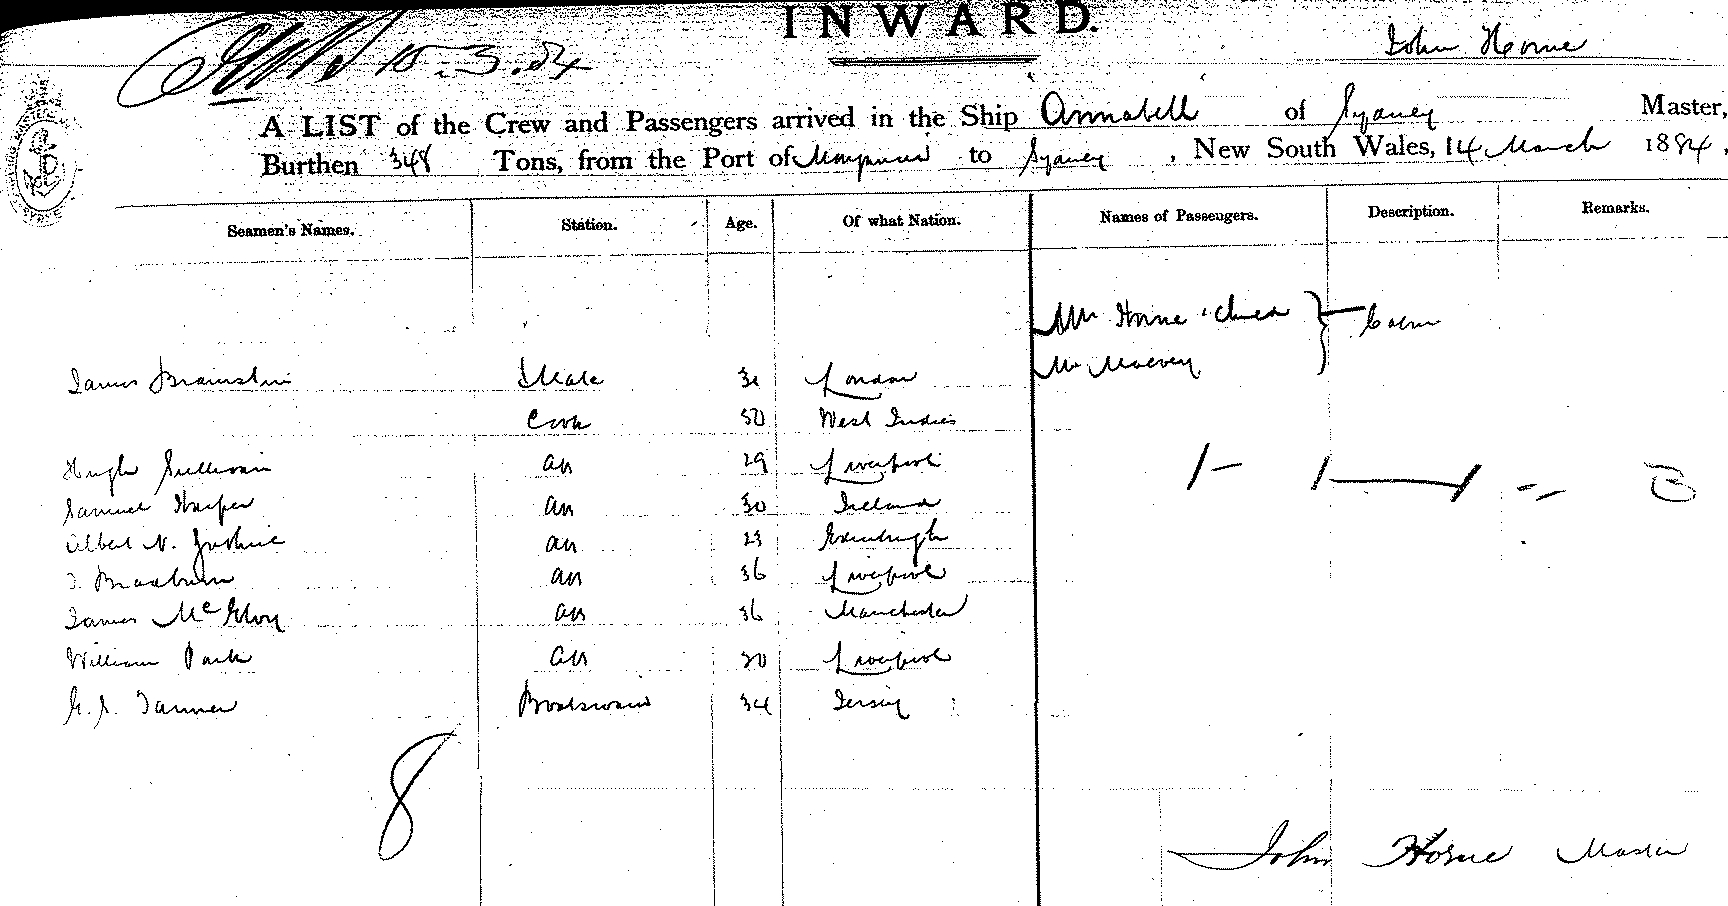 INWARD.
15.3.84
John Horne
A LIST of the Crew and Passengers arrived in the Ship Annabell of Sydney Master,
Burthen 348 Tons, from the Port of to Sydney, New South Wales, 14 March 1884,
Seamen's Names. Station. Age. Of what Nation. Names of Passengers. Description. Remarks.
Horne Cabin
Mr
James Mate London
Cook 50 West Indies
Hugh Sullivan AB 29 Liverpool
Samuel Harper AB 30 Ireland
Albert N. AB 23 Edinburgh
Bradburn AB 36 Liverpool
James McElroy AB 36 Manchester
William Park AB 30 Liverpool
Tanner Boatswain 34 Jersey
8
John Horne Master